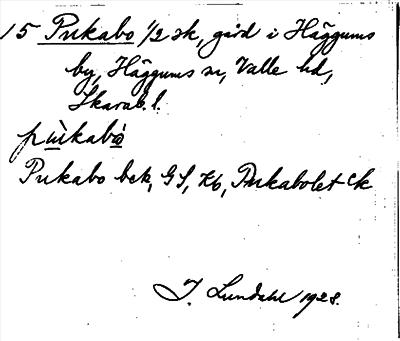 15 Pukabo 1/2 sk, gård i Häggums
by, Häggums sn, Valle hd,
Skarab. l.
pùkabò
Pukabo bck, GS, Kb, Pukabolet ck
I. Lundahl 1928.